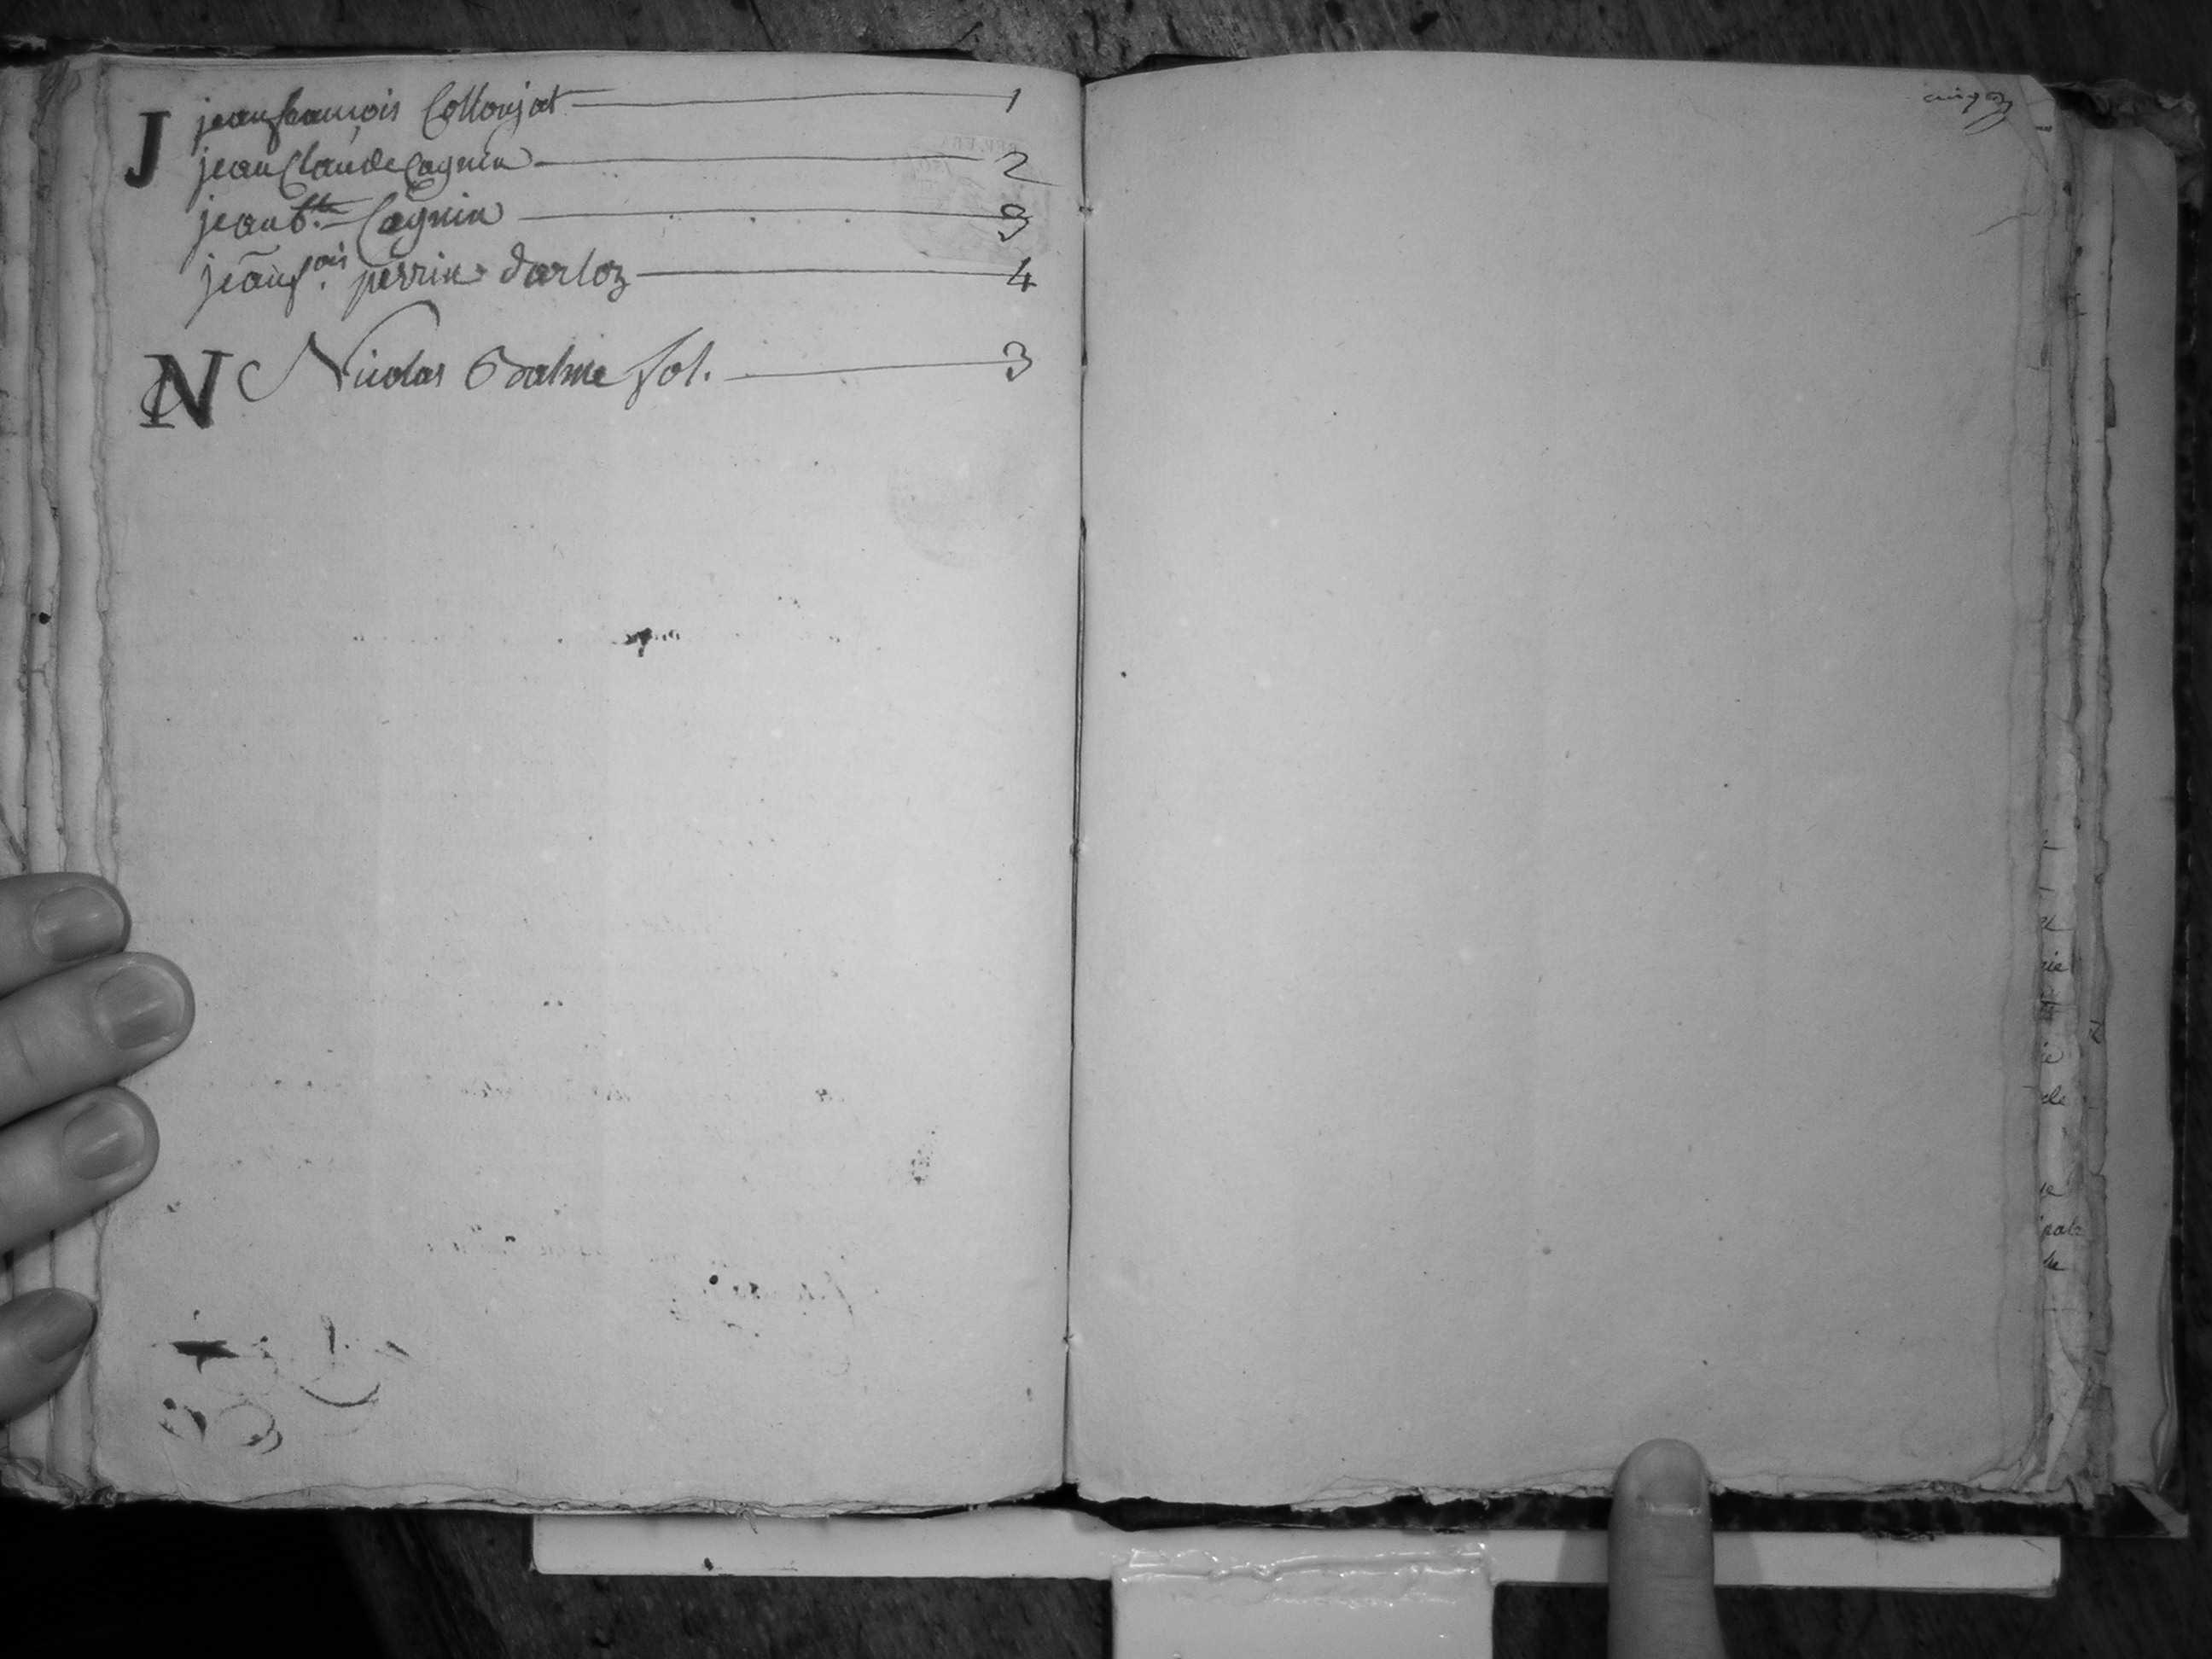 J jeanfrancois Collonjat 1
jean Claude Cagnin 2
jean b.te Cagnin 3
jean f.ois perrin darloz 4
N Nicolas Balme fol. 3
cinq